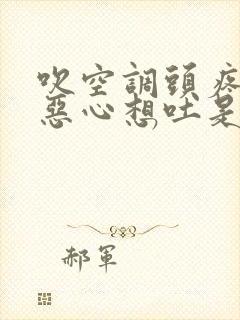 吹空調頭疼
惡心想吐是
郝軍